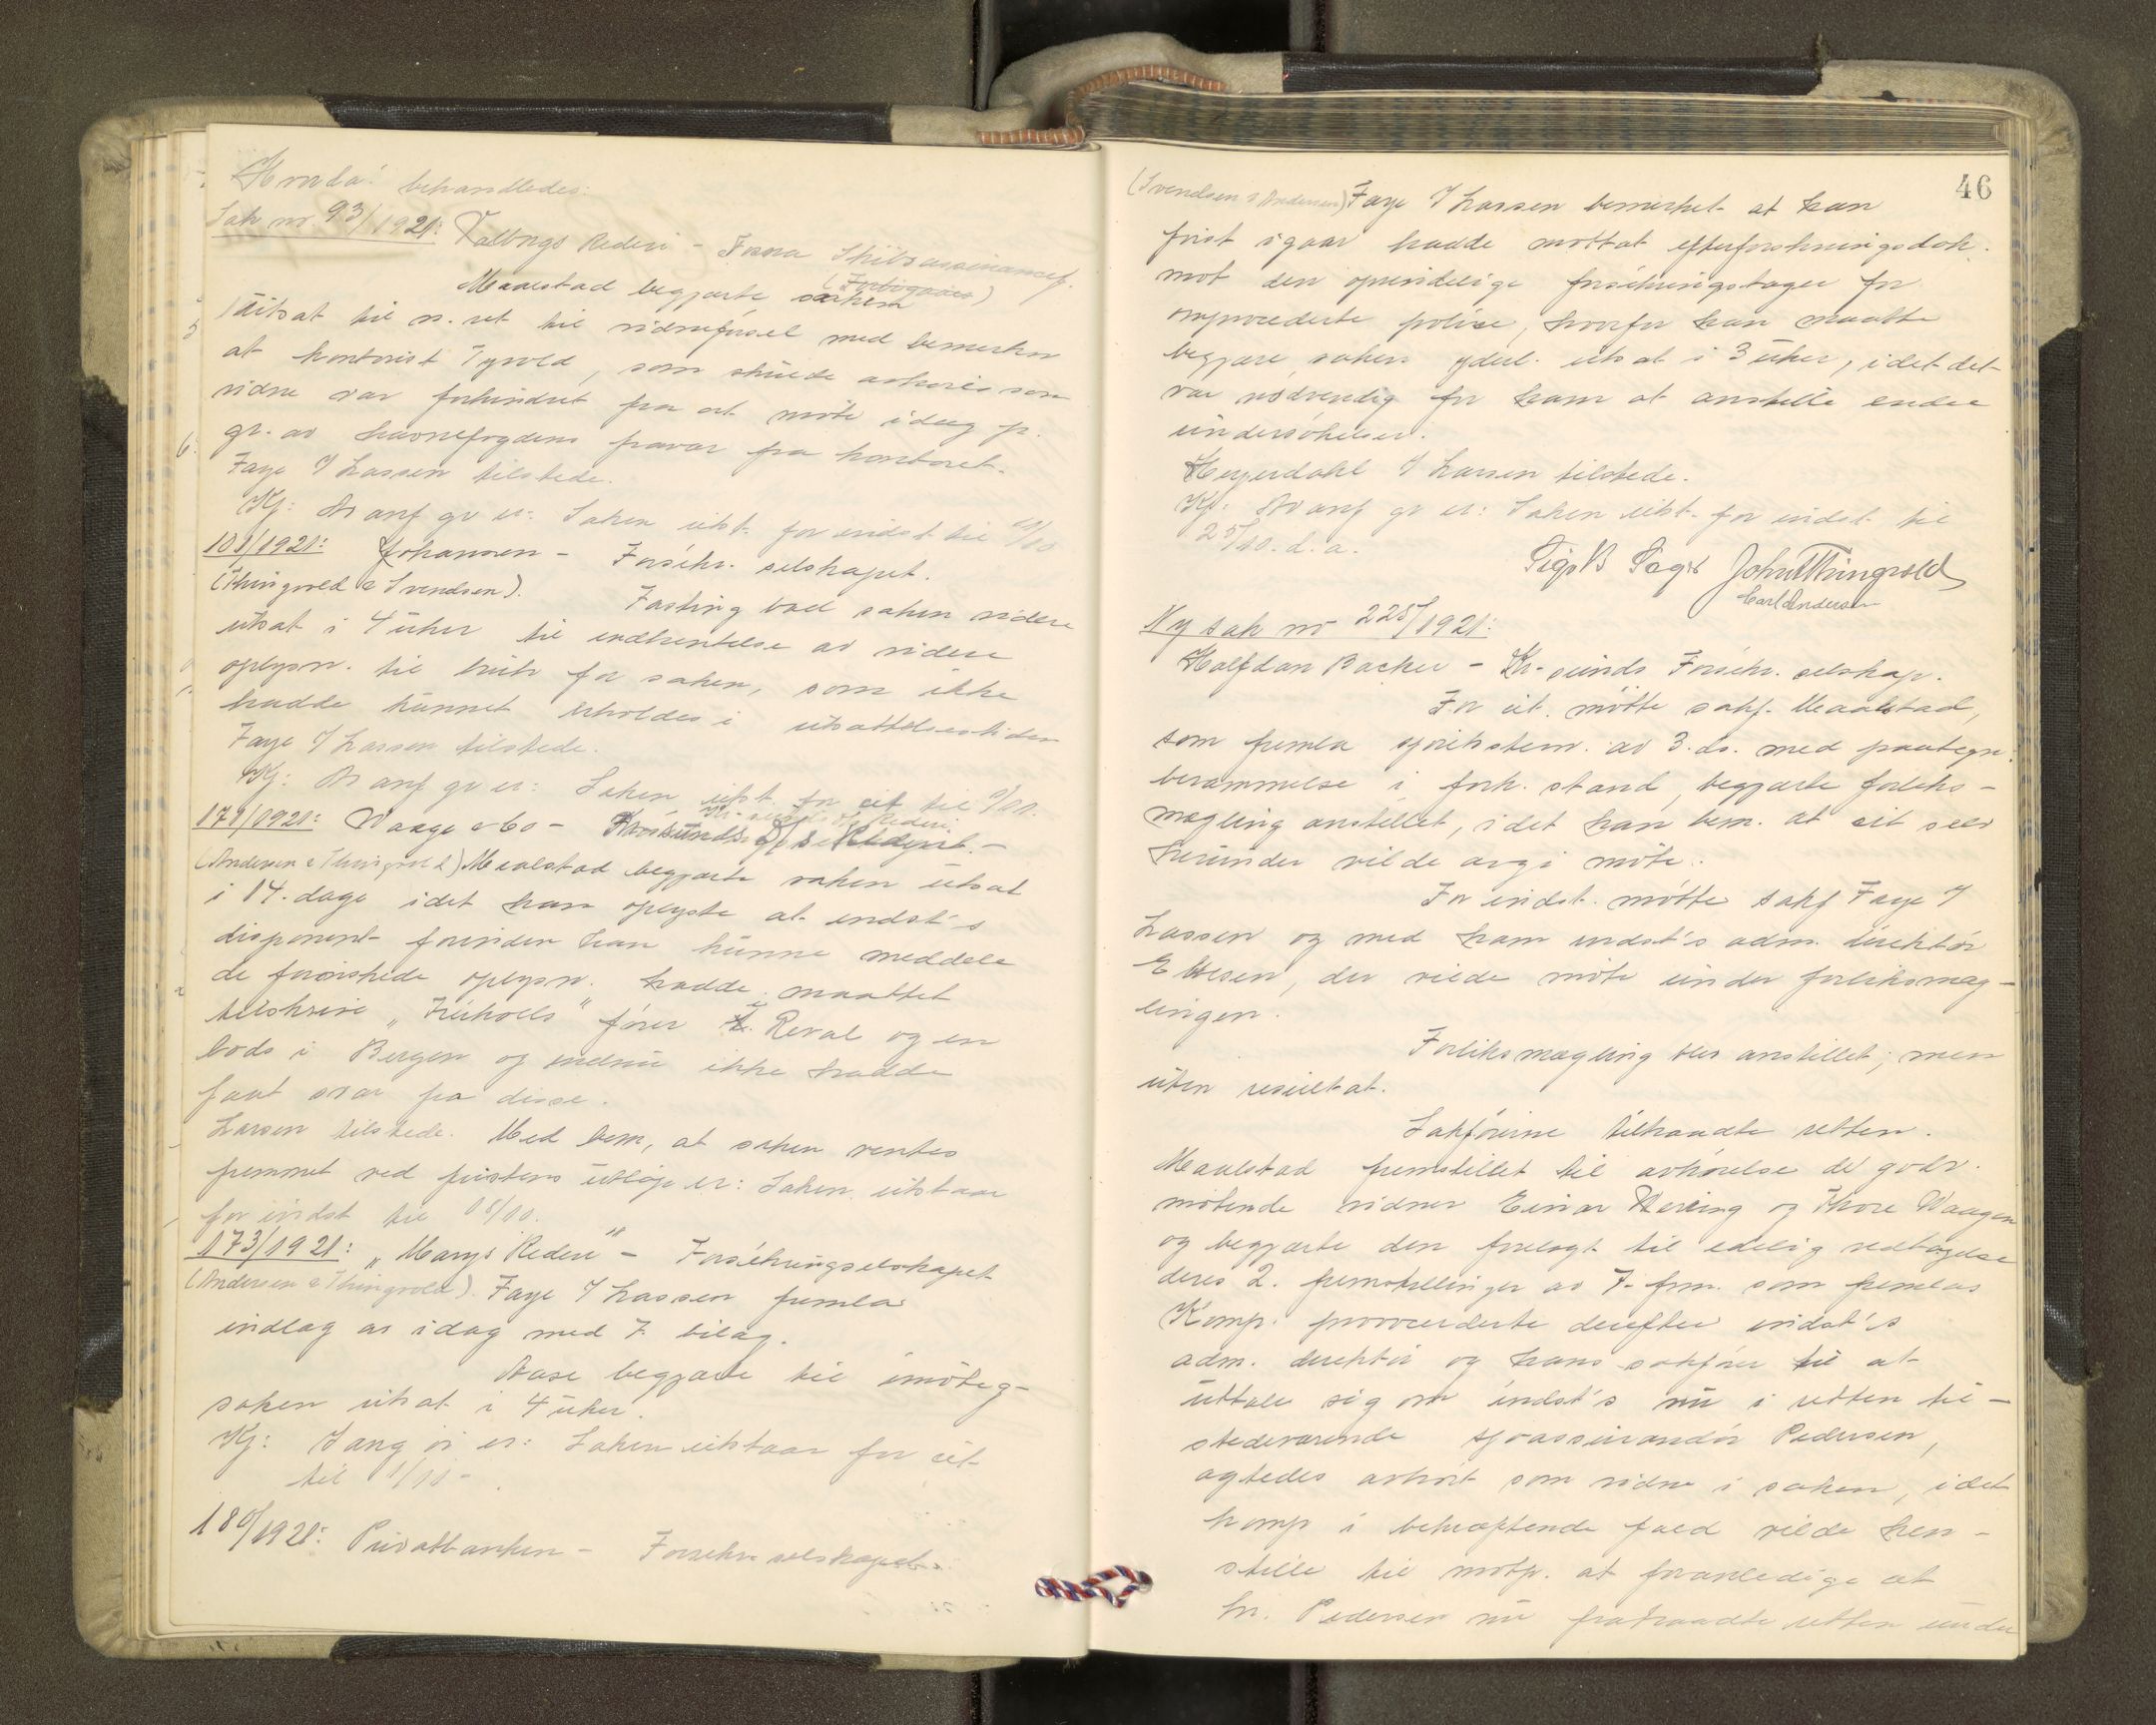 behandledes:
Sak nr. 93/1921: Valborgs Rederi - Fosna Skibsassurancef.
Maalstad begjærte saken
utsat til n. ret til vidneførsel med bemerkn
at kontorist Tyvold, som skulde avhøres som
vidne var forhindret fra at møte idag p.
gr. av havnefogdens fravær fra kontoret.
Faye I Lassen tilstede.
Kj: Av anf gr er: Saken utst. for indst til
101/1921: Johansen - Forsikr. selskapet.
(Thingvold & Svendsen). Fasting bad saken videre
utsat i 4 uker til indhentelse av videre
oplysn. til bruk for saken, som ikke
hadde kunnet erholdes i utsættelsestiden
Faye I Lassen tilstede.
Kj: Av anf gr er: Saken utst. for cit til
171/1921: Waage & Co -
(Andersen & Thingvold) Maalstad begjærte saken utsat
i 14. dage idet han oplyste at indst's
disponent forinden han kunne meddele
de forønskede oplysn. hadde maattet
tilskrive fører i Reval og en
lods i Bergen og endnu ikke hadde
faat svar fra disse.
Larsen tilstede. Med bem, at saken ventes
fremmet ved fristens utløp er: Saken utstaar
for indst til 18/10.
173/1921: "Marys Rederi" - Forsikringselskapet
(Andersen & Thingvold). Faye I Lassen fremla
indlæg av idag med 7 bilag.
Aase begjærte til imøteg-
saken utsat i 4 uker.
Kj: I ang vi er: Saken utstaar for cit
til 1/10 -
180/1921: Privatbanken - Forsikr selskapet
46
(Svendsen & Andersen) Faye I Lassen bemerket at han
først igaar hadde mottat efterforskningsdok.
mot den oprindelige forsikringstager for
omprocederte polise, hvorfor han maatte
begjære saken yderl. utsat i 3 uker, idet det
var nødvendig for ham at anstille endee
undersøkelser.
Heyerdahl I Larsen tilstede.
Kj: Av anf gr er: Saken utst. for indst til
25/10. d.a.
John Thingvold
Carl Andersen
Ny sak nr 225/1921:
Halfdan Backer - Kr-sunds Forsikr. selskap.
For cit. møtte sakf. Maalstad,
som fremla sjøretsstevn. av 3. ds. med paategn.
berammelse i fork. stand, begjærte forliks-
mægling anstillet, idet han bem. at cit selv
herunder vilde avgi møte.
For indst. møtte sakf Faye I
Lassen og med ham indst's adm. direktør
Ellesen, der vilde møte under forliksmæg-
lingen.
Forliksmægling blev anstillet; men
uten resultat.
Sakførerne tiltraadte retten.
Maalstad fremstillet til avhørelse de godv.
møtende vidner Einar Werring og Thore Waagen
og begjærte den forelagt til edelig vedtagelse
deres 2. fremstillinger av 7. frm. som fremlas
Komp. provocerderte derefter indst's
adm. direktør og hans sakfører til at
uttale sig om indst's nu i retten til-
stedeværende sjøassurandør Pedersen,
agtedes avhørt som vidne i saken, idet
komp i bekræftende fald vilde hen-
stille til motp. at foranledige at
hr. Pedersen nu fratraadte retten under